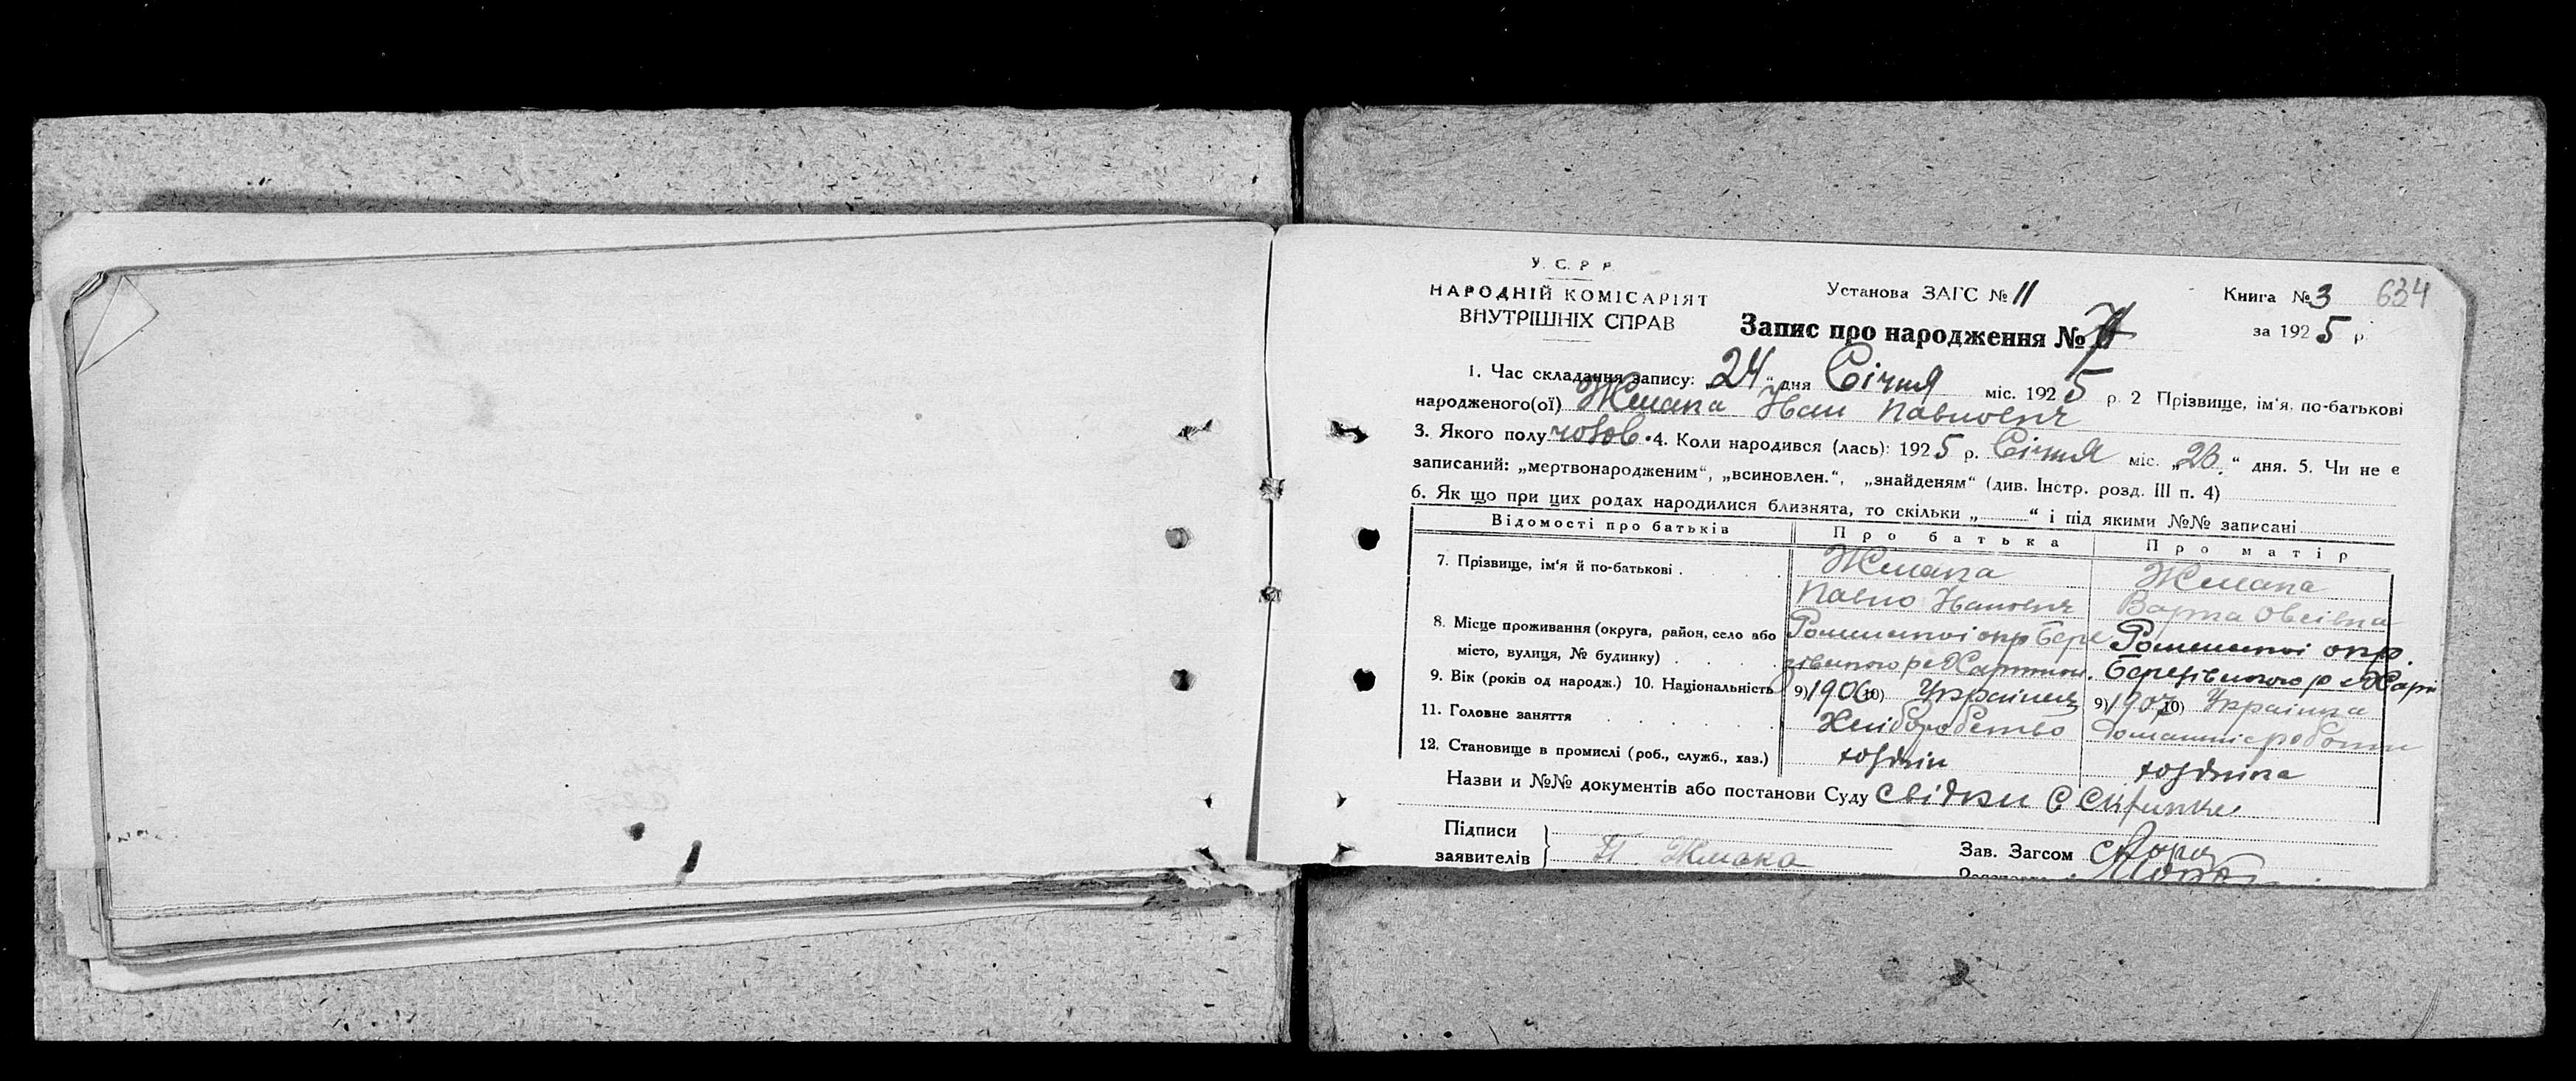 У. С. Р. Р.
НАРОДНІЙ КОМІСАРІЯТ
ВНУТРІШНІХ СПРАВ
Установа ЗАГС № 11
Книга № 3
634
Запис про народження №
за 1925 р.
1. Час складання запису: „24“ дня Січня міс. 1925 р. 2 Прізвище, ім'я, по-батькові
народженого(ої) Жмака Іван Павлович
3. Якого полу чолов. 4. Коли народився (лась): 1925 р. Січня міс. „23“ дня. 5. Чи не є
записаний: „мертвонародженим“, „всиновлен.“, „знайденям“ (див. Інстр. розд. III п. 4)
6. Як що при цих родах народилися близнята, то скільки „ “ і під якими №№ записані
Відомості про батьків Про батька Про матір
7. Прізвище, ім'я й по-батькові . Жмака Жмака
Павло Іванович Варка Овсіївна
8. Місце проживання (округа, район, село або Роменської окр Бере Роменської окр.
місто, вулиця, № будинку) зівського р Березівського р
9. Вік (років од народж.) 10. Національність 9) 1906 10) Українець 9) 1907 10) Українка
11. Головне заняття Хліборобство Домашні роботи
12. Становище в промислі (роб., служб., хаз.) хозяїн хозяїка
Назви и №№ документів або постанови Суду Свідки С
Підписи
заявителів П. Жмака
Зав. Загсом